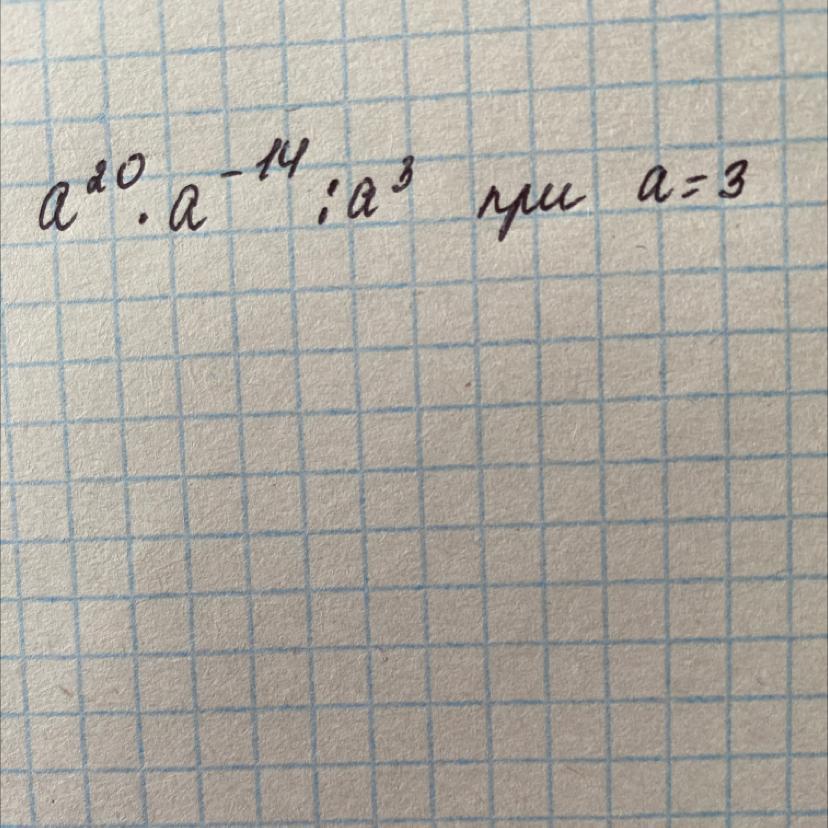 a²⁰ · a⁻¹⁴ : a³ при a = 3